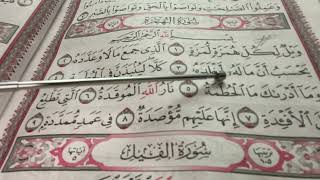 وَعَمِلُوا۟ ٱلصَّٰلِحَٰتِ وَتَوَاصَوْا۟ بِٱلْحَقِّ وَتَوَاصَوْا۟ بِٱلصَّبْرِ
سُورَةُ الْهُمَزَةِ
وَيْلٌ لِّكُلِّ هُمَزَةٍ لُّمَزَةٍ ١ ٱلَّذِى جَمَعَ مَالًا وَعَدَّدَهُۥ ٢
يَحْسَبُ أَنَّ مَالَهُۥٓ أَخْلَدَهُۥ ٣ كَلَّا لَيُنۢبَذَنَّ فِى
وَمَآ أَدْرَىٰكَ مَا ٱلْحُطَمَةُ ٥ نَارُ ٱللَّهِ ٱلْمُوقَدَةُ ٦ ٱلَّتِى تَطَّلِعُ
ٱلْأَفْـِٔدَةِ ٧ إِنَّهَا عَلَيْهِم مُّؤْصَدَةٌ ٨ فِى عَمَدٍ مُّمَدَّدَةٍۭ ٩
سُورَةُ الْفِيلِ